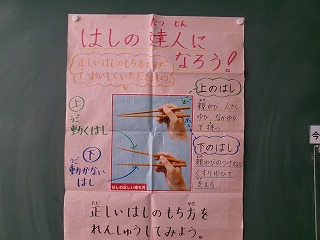 たつ じん
はしの達人に
なろう!
正しいはしのもち方をみにつけ
て、おいしくいただきましょう
上のはし
親ゆび、人さし
ゆび、なかゆび
で持つ
上
うご
動くはし
下
うご
動かない
はし
下のはし
親ゆびのつけねと
くすりゆびで
支える
はしの正しい持ち方
ただ かた
正しいはしのもち方を
れんしゅうしてみよう。
今